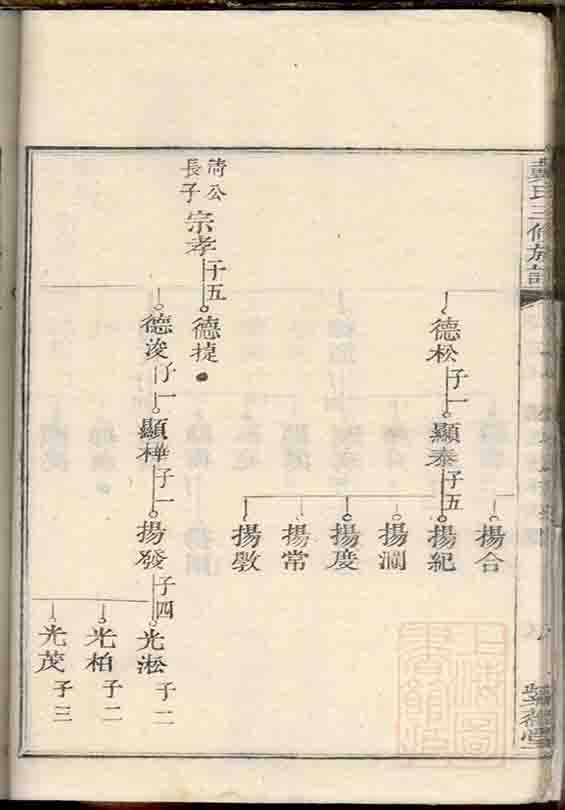 戴氏三修族譜
揚合
德松
子一
顯泰
子五
揚紀
揚瀾
揚度
揚常
揚敎
清公
長子
宗孝
子五
德捷
德浚
子一
顯樺
子一
揚發
子四
光淞
子二
光柏
子二
光茂
子三
上海圖
書館藏